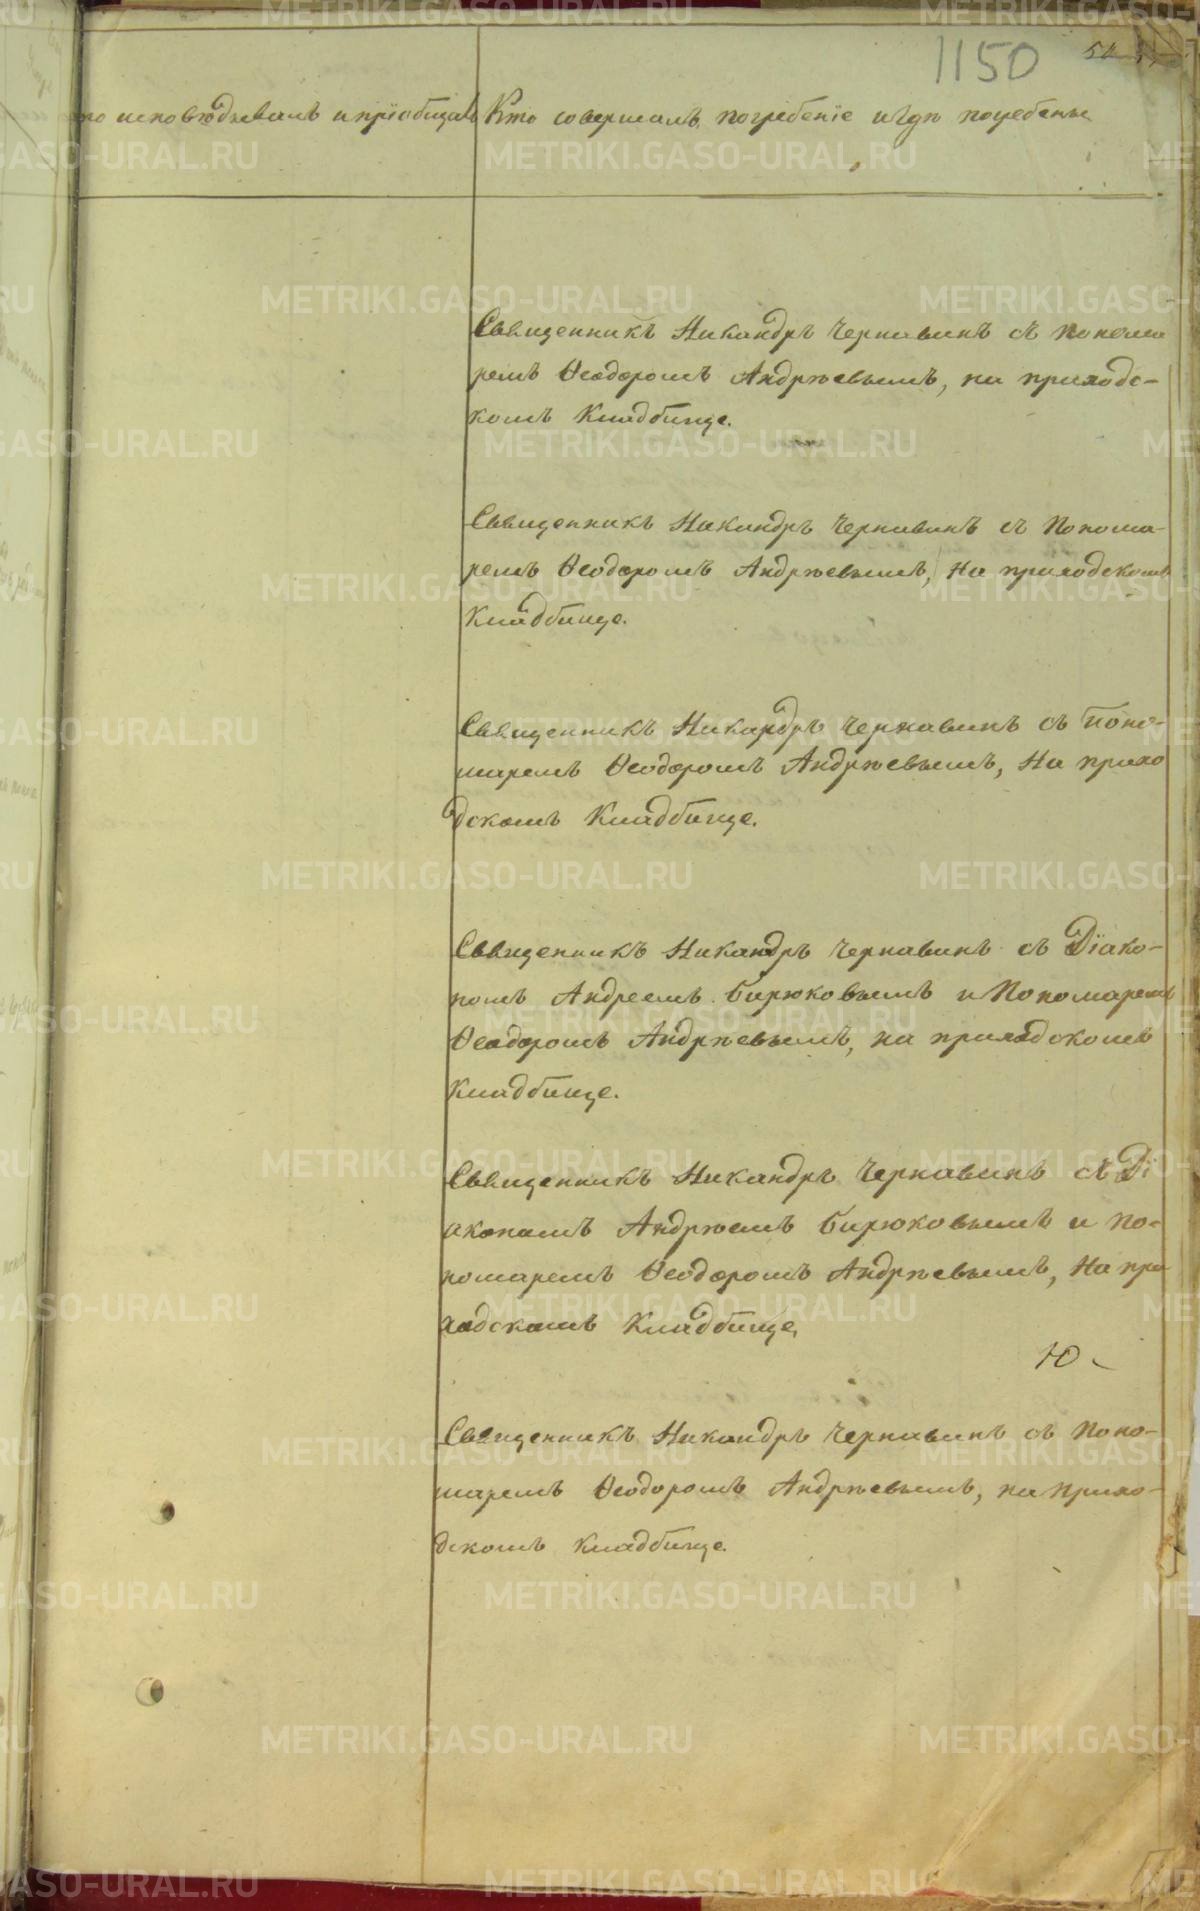 1150
Кто исповѣдывалъ и пріобщалъ
Кто совершалъ погребеніе и гдѣ погребены
Священникъ Никандръ Чернавинъ съ Понома
ремъ Ѳеодоромъ Андрѣевымъ, на приходс-
комъ Кладбище.
Священникъ Никандръ Чернавинъ съ Понома-
ремъ Ѳеодоромъ Андрѣевымъ, На приходскомъ
Кладбище.
Священникъ Никандръ Чернавинъ съ Поно-
маремъ Ѳеодоромъ Андрѣевымъ, На прихо
дскомъ Кладбище.
Священникъ Никандръ Чернавинъ съ Діако-
номъ Андреемъ Бирюковымъ и Пономаремъ
Ѳеодоромъ Андрѣевымъ, на приходскомъ
Кладбище.
Священникъ Никандръ Чернавинъ съ Ді
акономъ Андрѣемъ Бирюковымъ и По-
номаремъ Ѳеодоромъ Андрѣевымъ, На при
ходскомъ Кладбище,
Ю
Священникъ Никандръ Чернавинъ съ Поно-
маремъ Ѳеодоромъ Андрѣевымъ, на прихо-
дскомъ Кладбище.
METRIKI.GASO-URAL.RU